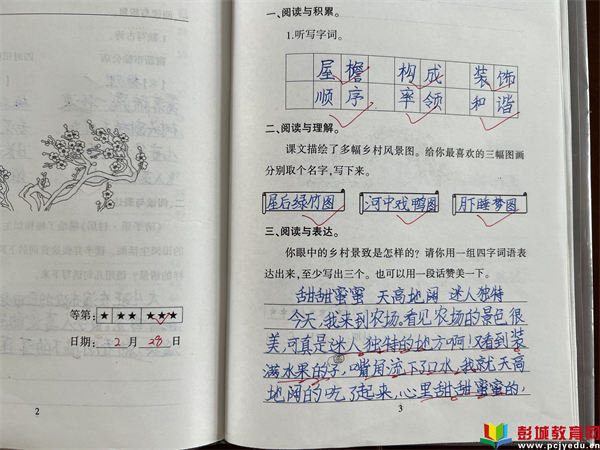 等第: ★ ★★ ★★★
日期: 2 月 28 日
2
一、阅读与积累。
1.听写字词。
屋檐 构成 装饰
顺序 率领 和谐
二、阅读与理解。
课文描绘了多幅乡村风景图。给你最喜欢的三幅图画
分别取个名字,写下来。
屋后绿竹图 河中戏鸭图 月下睡梦图
三、阅读与表达。
你眼中的乡村景致是怎样的?请你用一组四字词语表
达出来,至少写出三个。也可以用一段话赞美一下。
甜甜蜜蜜 天高地阔 迷人独特
今天,我来到农场。看见农场的景色很
美,可真是迷人独特的地方啊!又看到装
满水果的子,嘴角流下了口水,我就天高
地阔的吃了起来,心里甜甜蜜蜜的,
3
彭城教育网
www.pcjyedu.cn